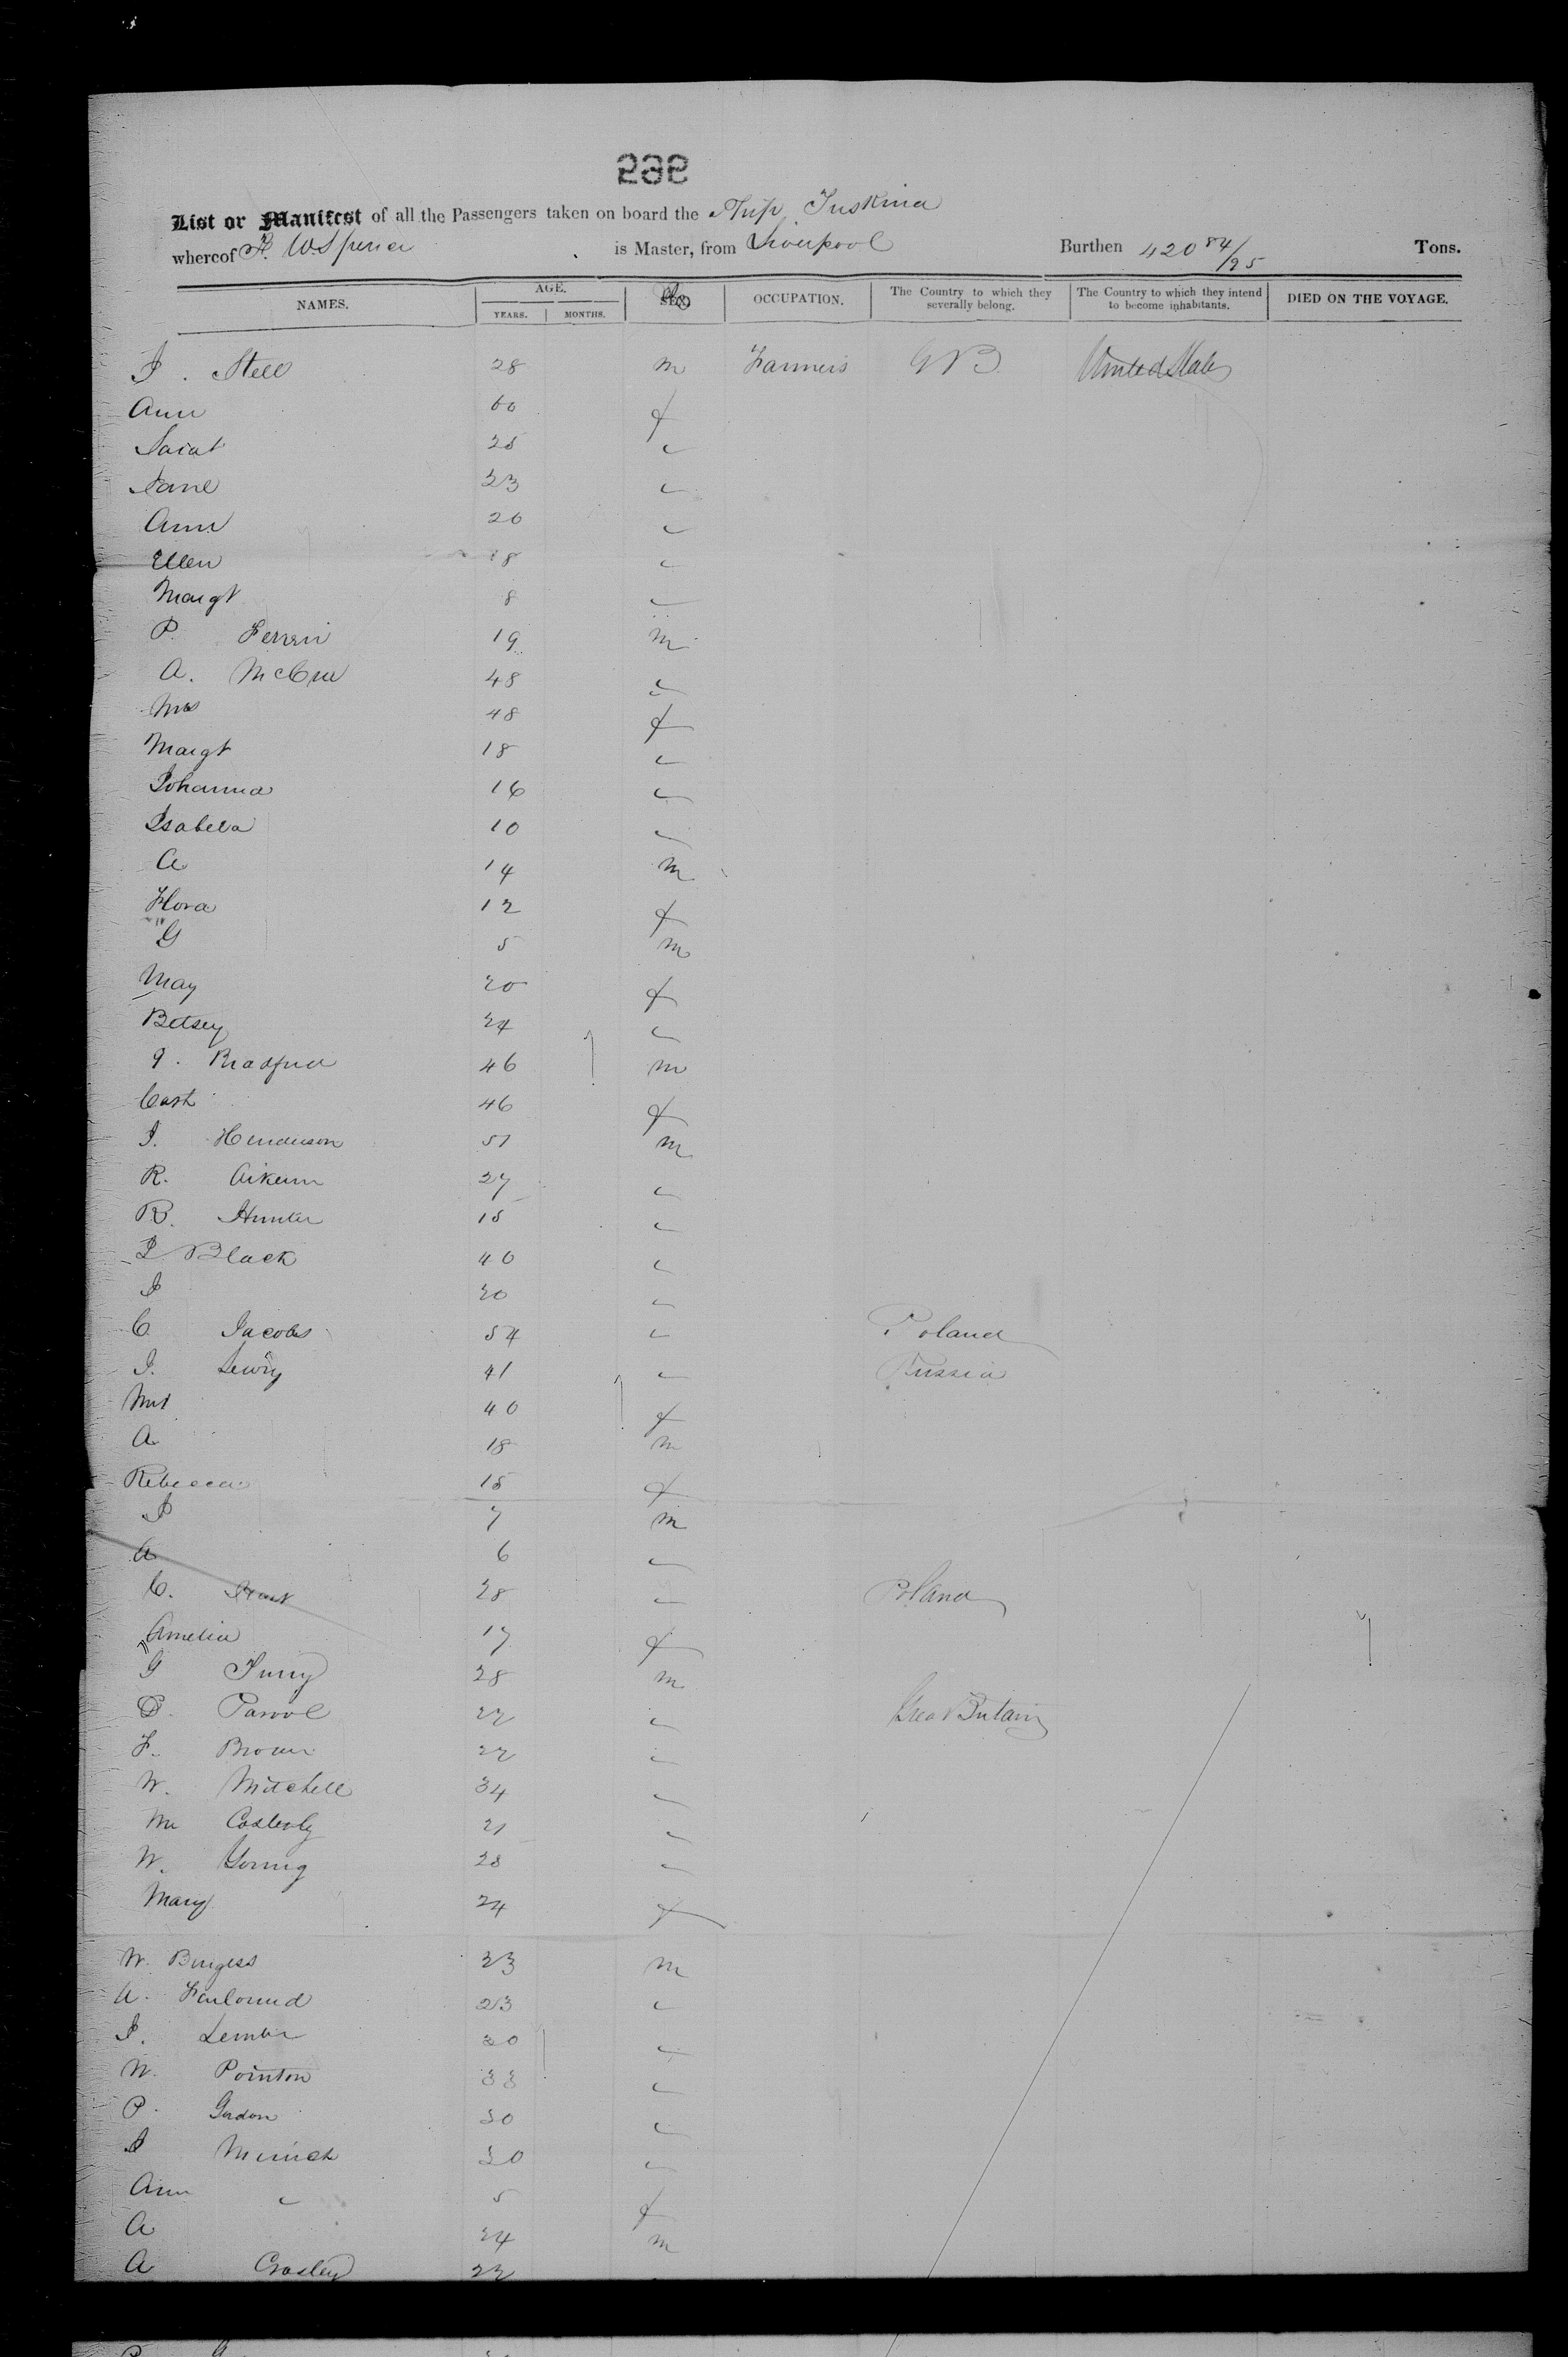 595
List or Manifest of all the Passengers taken on board the Ship Tuskina
whereof F. W. Spencer is Master, from Liverpool Burthen 420 84/95 Tons.
NAMES. AGE. SEX. OCCUPATION. The Country to which they severally belong. The Country to which they intend to become inhabitants. DIED ON THE VOYAGE.
YEARS. MONTHS.
J. Stell 28 m Farmers GB United States
Ann 60 f
25 "
Jane 23 "
Ann 20 "
Ellen 18 "
Margt 8 "
P. 19 m
A. McCree 48 "
Mrs 48 f
Margt 18 "
Johanna 16 "
Isabela 10 "
A 14 m
Flora 12 f
G 5 m
May 20 f
Betsey 24 "
46 m
Cath 46 f
J. Henderson 51 m
R. Aikenn 27 "
R. Hunter 18 "
J Black 40 "
J 20 "
C Jacobs 54 " Poland
J. Lewey 41 " Russia
Mrs 40 f
A 18 m
Rebecca 15 f
J 7 m
A 6 "
C. 28 " Poland
Amelia 17 f
G 28 m
22 " Great Britain
F. Brown 22 "
W. Mitchell 34 "
21 "
W. Young 28 "
Mary 24 f
W. Burgess 23 m
A. 23 "
J. 30 "
W. Pointon 33 "
P. Gordon 30 "
J 30 "
Ann " 5 f
A 24 m
A Crosley 22